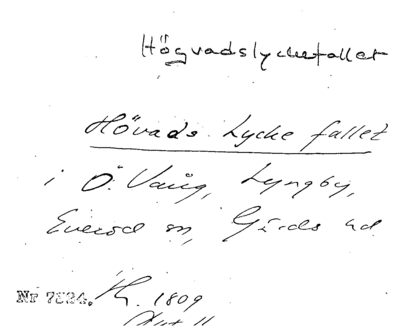 Högvadslyckefallet
Hövads Lycke fallet
i Ö. Vång, Lyngby,
Everöd sn, Gärds hd
Nr 7834. 1809